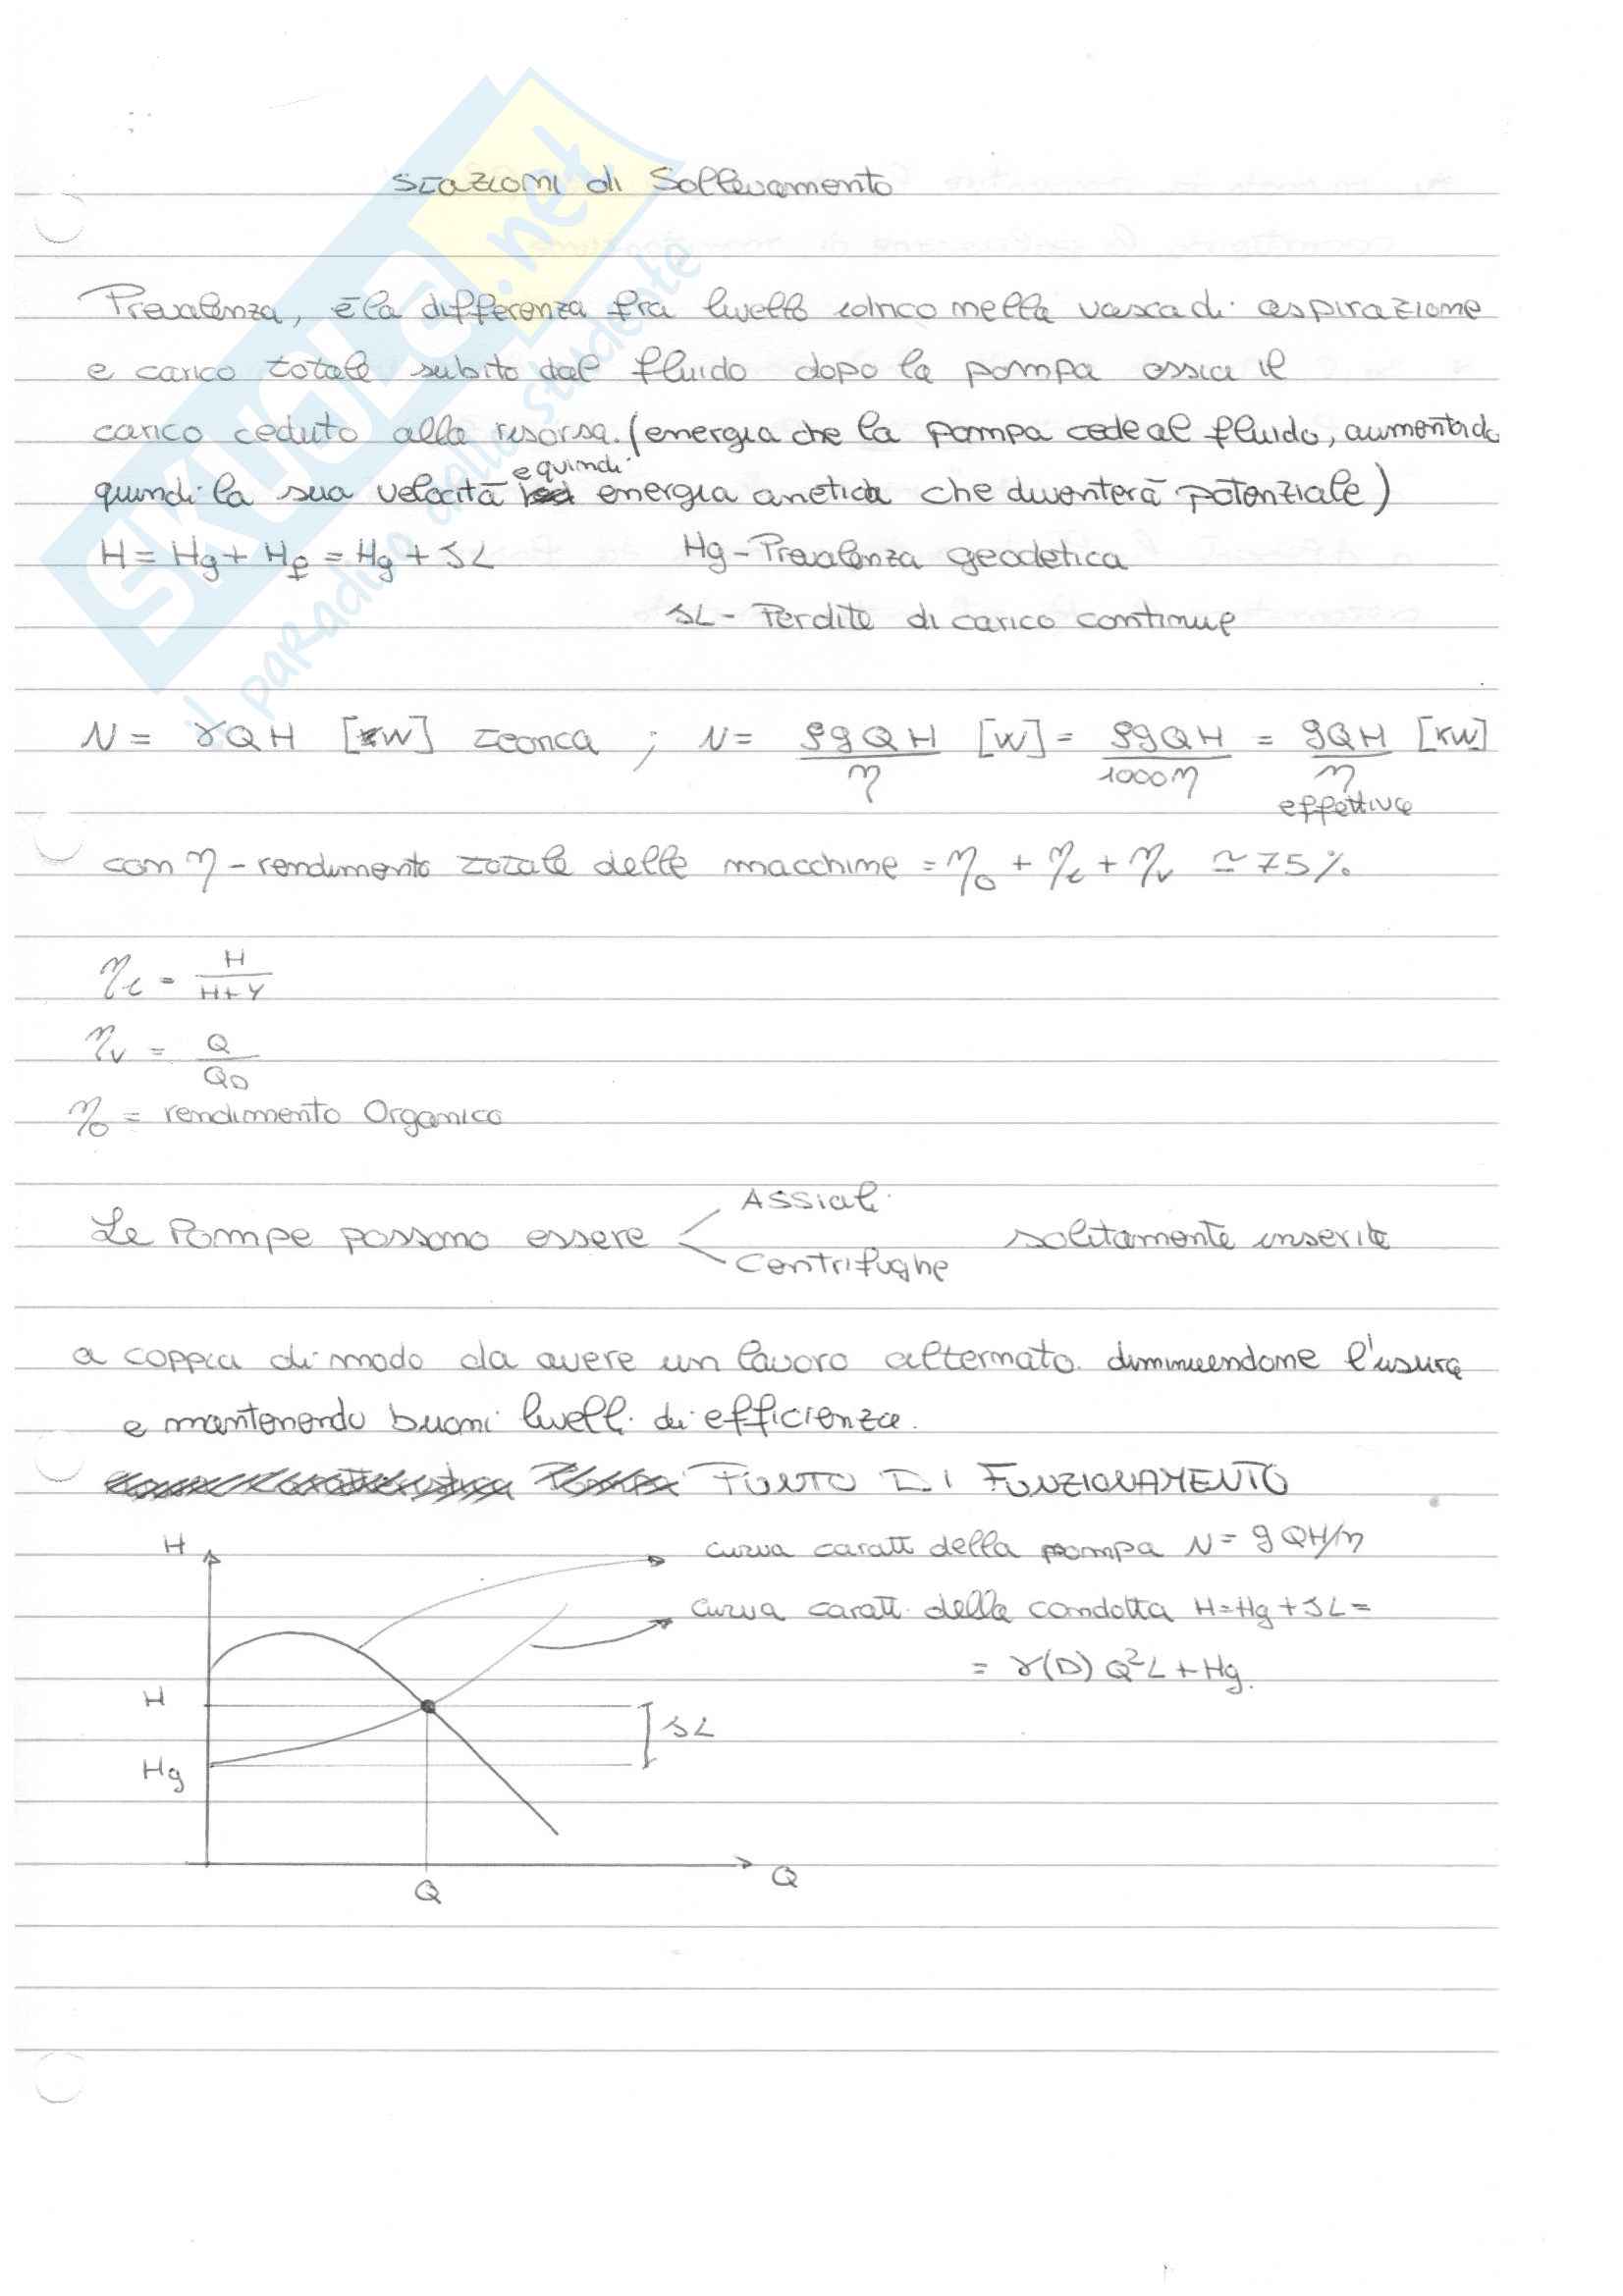 SKUOLA.net
il paradiso dello studente
Stazioni di Sollevamento
Prevalenza, è la differenza fra livello idrico nella vasca di aspirazione
e carico totale subito dal fluido dopo la pompa ossia il
carico ceduto alla risorsa. (energia che la pompa cede al fluido, aumentando
quindi la sua velocità e quindi energia cinetica che diventerà potenziale)
H = Hg + Hf = Hg + JL Hg - Prevalenza geodetica
JL - Perdite di carico continue
N = γQH [W] teorica ; N = ρgQH/η [W] = ρgQH/1000η = gQH/η [KW]
effettiva
con η - rendimento totale delle macchine = ηo + ηi + ηv ≃ 75%
ηi = H/H+Y
ηv = Q/QD
ηo = rendimento Organico
Assiali
Le Pompe possono essere solitamente inserite
Centrifughe
a coppia di modo da avere un lavoro alternato diminuendone l'usura
e mantenendo buoni livelli di efficienza.
PUNTO DI FUNZIONAMENTO
H
curva caratt della pompa N = gQH/η
curva caratt. della condotta H = Hg + JL =
= γ(D) Q²L + Hg.
H
JL
Hg
Q
Q